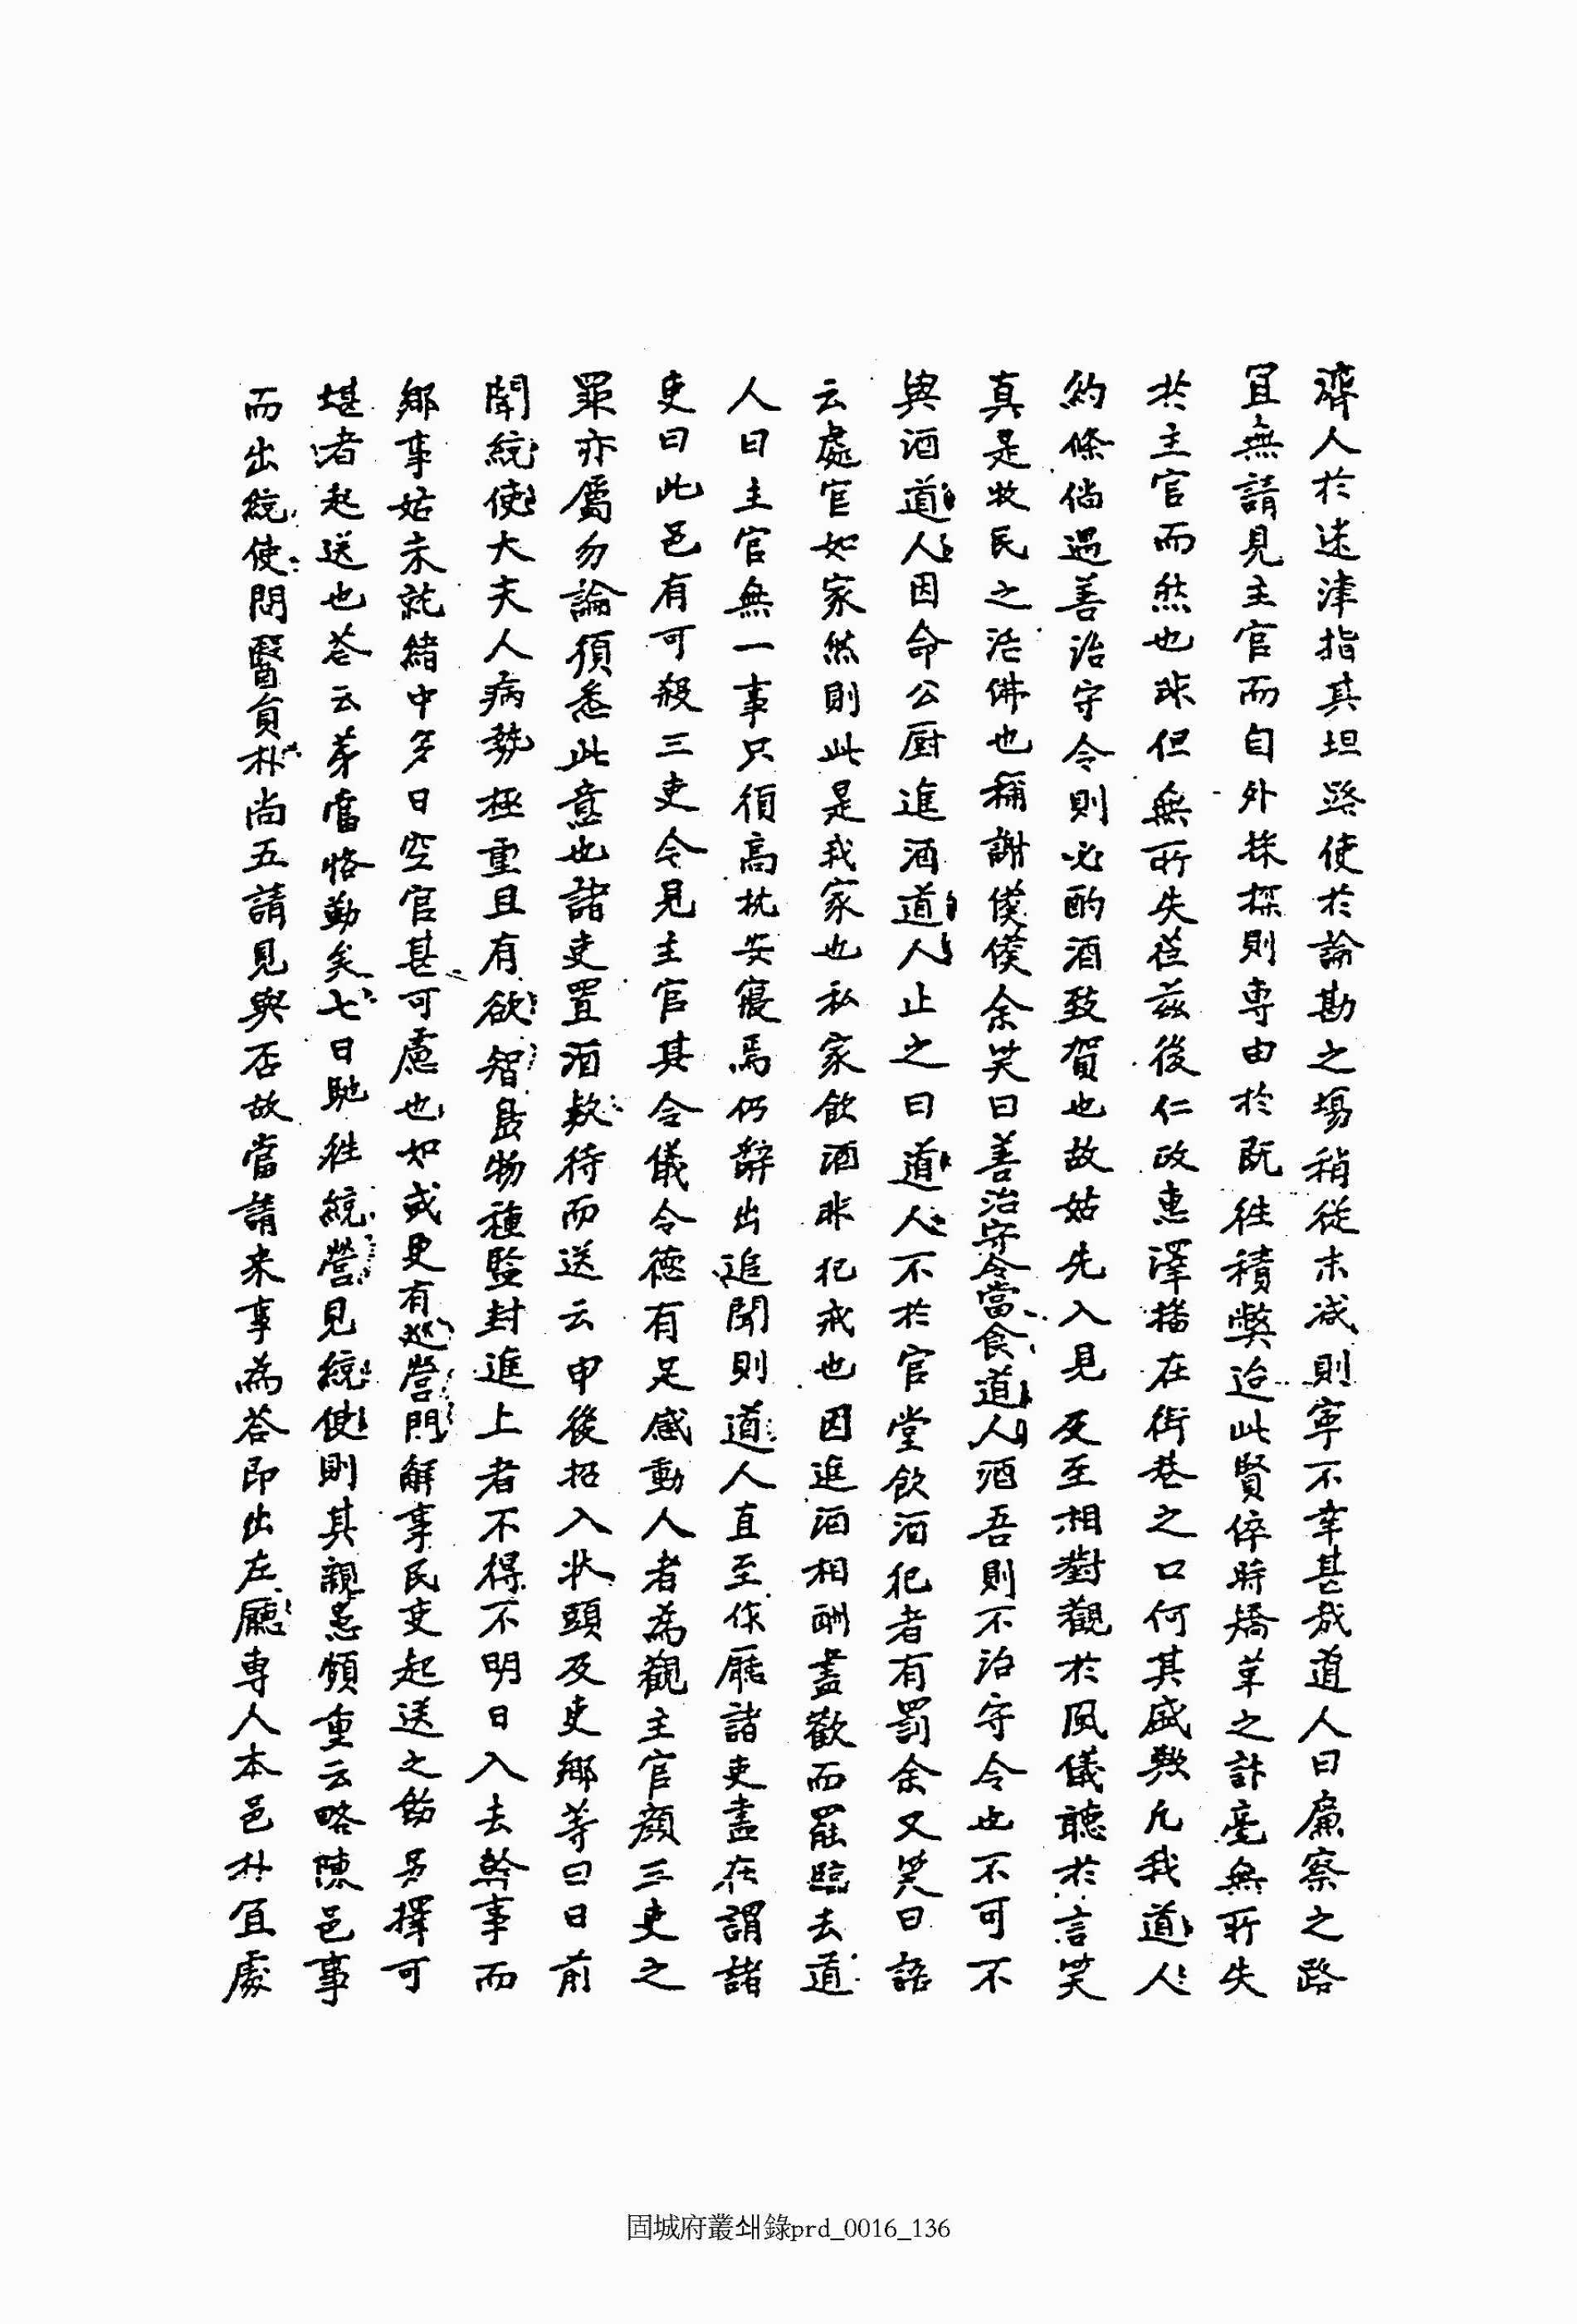 濟人於迷津指其坦路使於論勘之場稍從末減則寧不幸甚哉道人曰廉察之路
宜無請見主官而自外採探則專由於旣徃積弊迨此賢倅時矯革之計毫無所失
於主官而然也非但無所失從玆後仁政惠澤播在街巷之口何其盛歟凡我道人
約條倘遇善治守令則必酌酒致賀也故姑先入見及至相對觀於風儀聽於言笑
真是牧民之活佛也稱謝僕僕余笑曰善治守令當食道人酒吾則不治守令也不可不
與酒道人因命公厨進酒道人止之曰道人不於官堂飮酒犯者有罰余又笑曰語
云處官如家然則此是我家也私家飮酒非犯戒也因進酒相酬盡歡而罷臨去道
人曰主官無一事只須高枕安寢焉仍辭出追聞則道人直至作廳諸吏盡在謂諸
吏曰此邑有可殺三吏令見主官其令儀令德有足感動人者為觀主官顏三吏之
罪亦屬勿論須悉此意也諸吏置酒欵待而送云申後招入狀頭及吏鄉等曰日前
聞統使大夫人病勢極重且有欲智島物種監封進上者不得不明日入去幹事而
鄉事姑未就緖中多日空官甚可慮也如或更有巡營門解事民吏起送之飭另擇可
堪者起送也答云芽當恪勤矣七日馳徃統營見統使則其親患頗重云略陳邑事
而出統使問醫員朴尚五請見與否故當請來事為答即出左廳專人本邑朴宜處